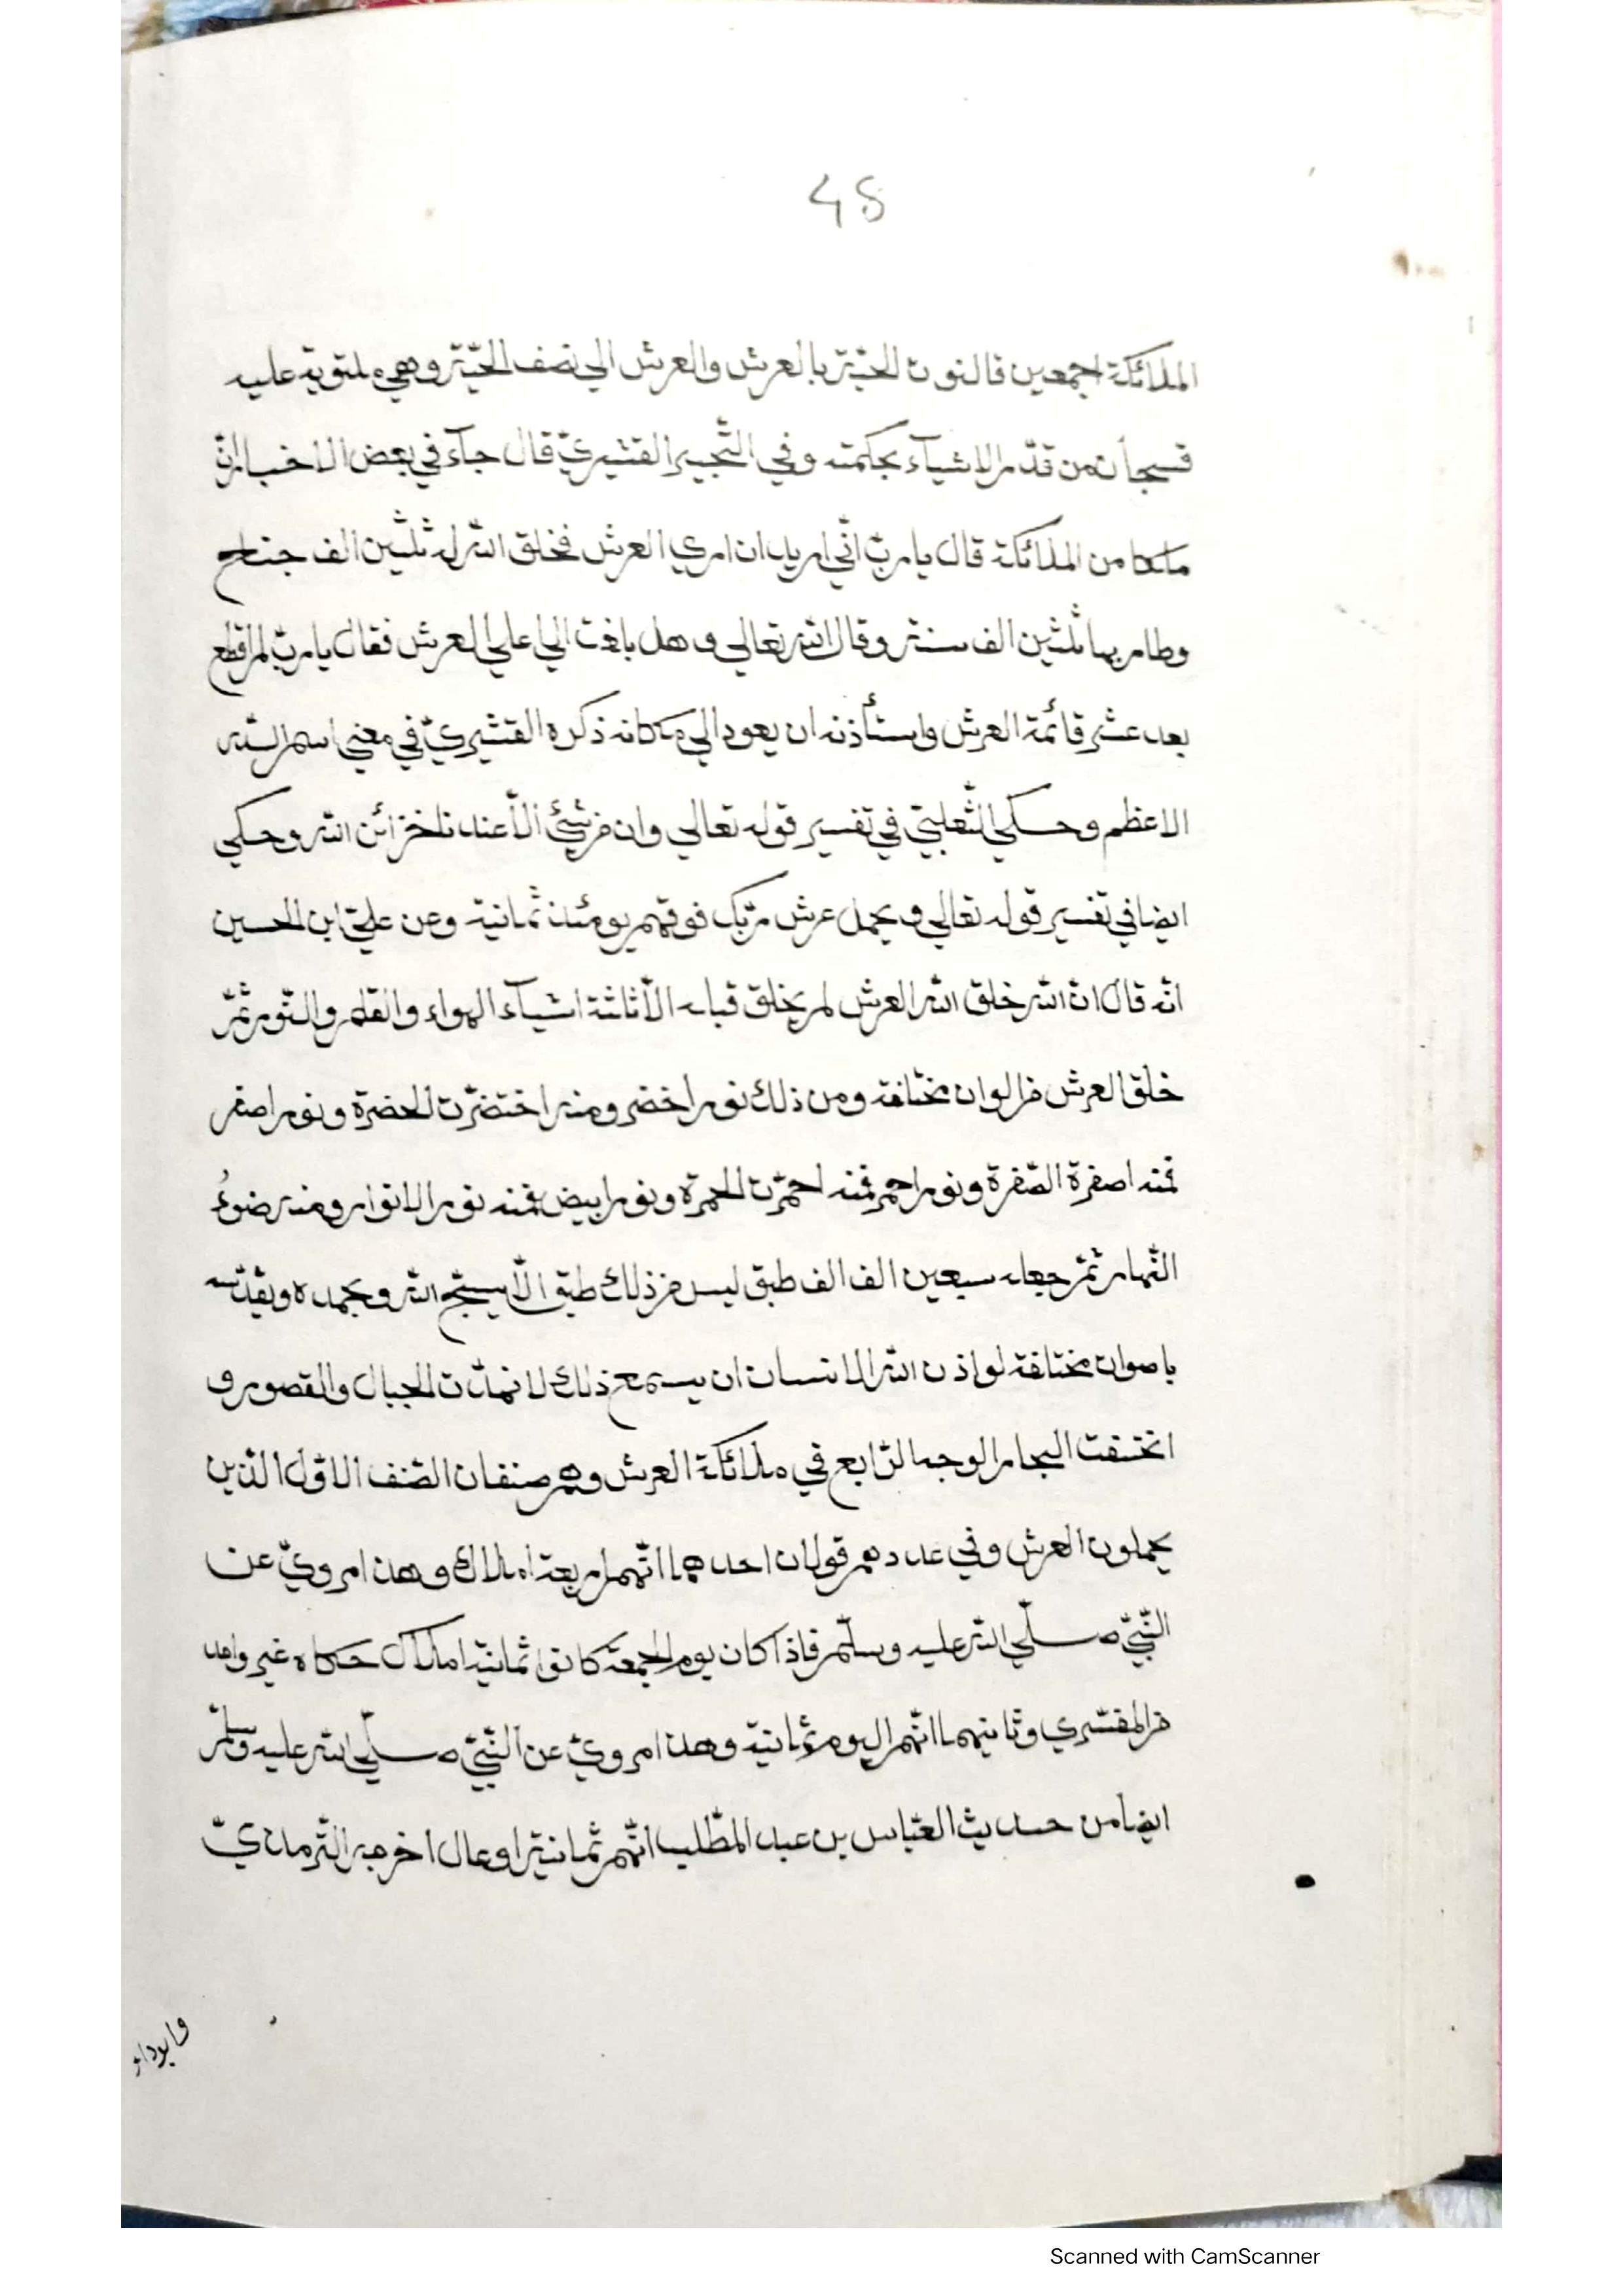 48
الملائكة اجمعين قالنوت الحيّة بالعرش والعرش الي نصف الحيّة وهي ملتوية عليه
فسبحان من قدّر الاشيآء بحكمته وفي التّحبير القشيريّ قال جآء في بعض الاخبار انّ
ملكا من الملائكة قال يا ربّ انّي اريد ان اري العرش فخلق اللّه له ثلثين الف جناح
وطار بها ثلثين الف سنة وقال اللّه تعالي وهل بلغت الي اعلي العرش فقال يا ربّ لم اقطع
بعد عشر قائمة العرش واستأذنه ان يعود الي مكانه ذكره القشيريّ في معني اسم اللّه
الاعظم وحكي الثّعلبيّ في تفسير قوله تعالي وان من شئ الّا عندنا خزائن اللّه وحكي
ايضا في تفسير قوله تعالي ويحمل عرش ربّك فوقهم يومئذ ثمانية وعن عليّ ابن الحسين
انّه قال انّ اللّه خلق اللّه العرش لم يخلق قبله الّا ثلثة اشيآء الهواء والقلم والنّور ثمّ
خلق العرش من الوان مختلفة ومن ذلك نور اخضر ومنه اختضرّت الخضرة ونور اصفر
فمنه اصفرة الصّفرة ونور احمر فمنه احمرّت الحمرة ونور ابيض فمنه نور الانوار ومنه ضوءُ
النّهار ثمّ جعله سبعين الف الف طبق ليس من ذلك طبق الّا يسبّح اللّه وبحمده ويقدّسه
باصوات مختلفة لو اذن اللّه الانسان ان يسمع ذلك لانهدّت الجبال والقصور و
انخسفت البحار الوجه الرّابع في ملائكة العرش وهم صنفان الصّنف الاوّل الّذين
يحملون العرش وفي عددهم قولان احدهما انّهم اربعة املاك وهذا مرويّ عن
النّبيّ صلّي اللّه عليه وسلّم فاذا كان يوم الجمعة كانوا ثمانية املاك حكاه غير واحد
من المفسّري وثانيهما انّهم اليوم ثمانية وهذا مرويّ عن النّبيّ صلّي اللّه عليه وسلّم
ايضا من حديث العبّاس بن عبد المطّلب انّهم ثمانية اوعال اخرجه التّرمذيّ
وابوداؤد
Scanned with CamScanner